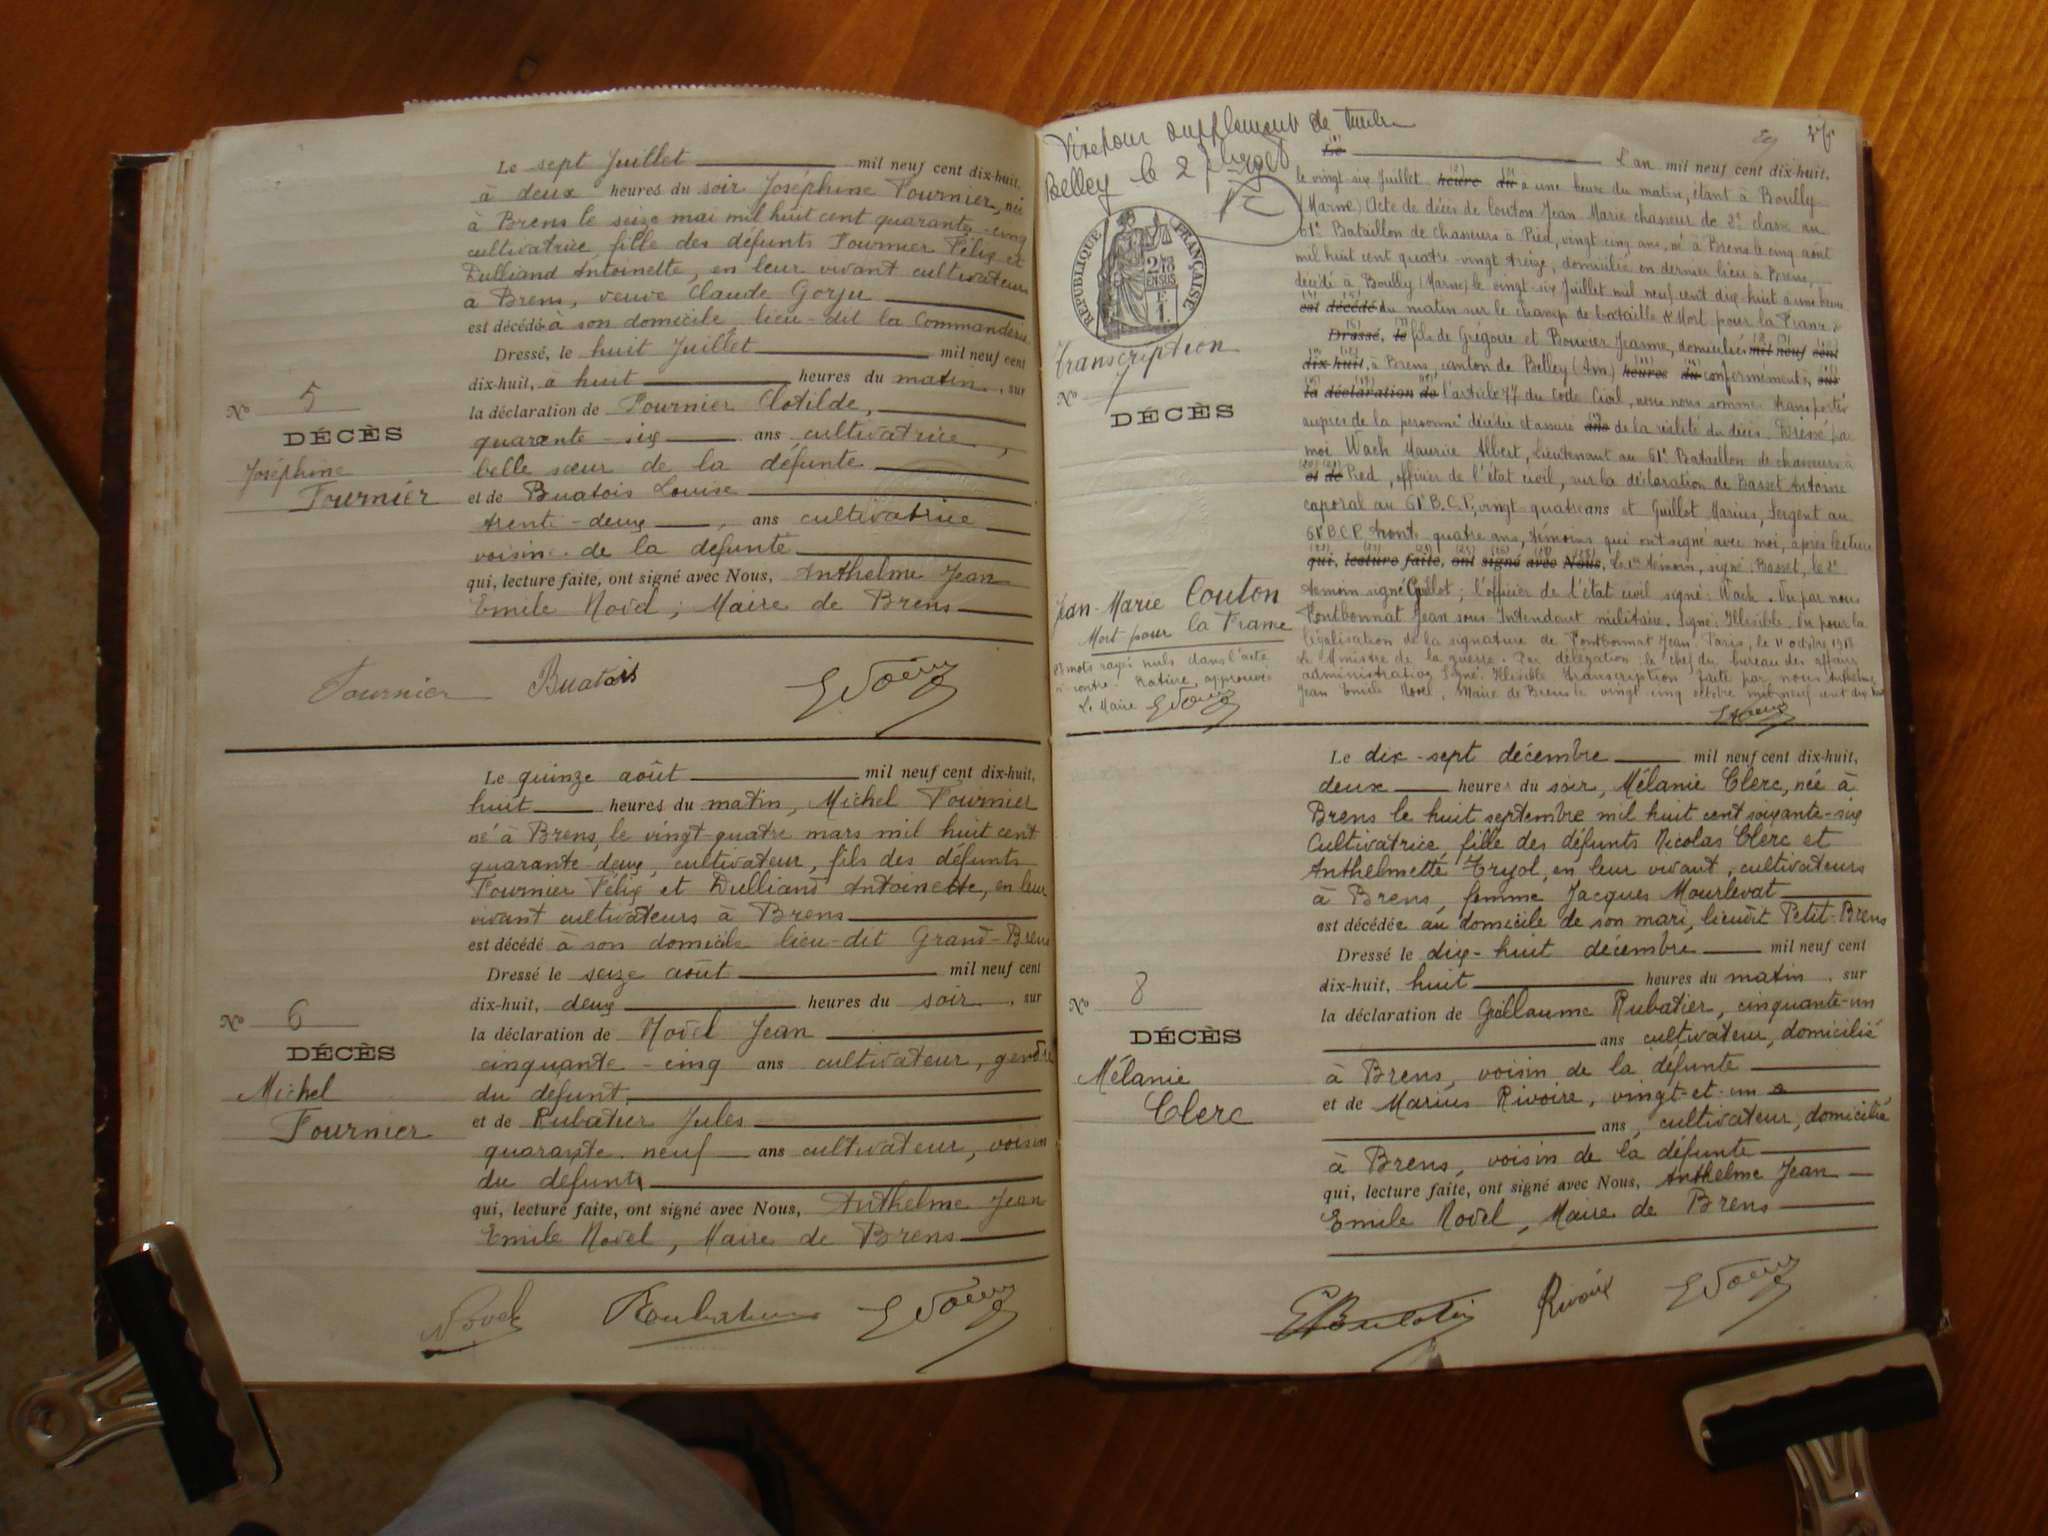 Le sept Juillet mil neuf cent dix-huit,
à deux heures du soir Joséphine Fournier, née
à Brens le seize mai mil huit cent quarante-cinq
cultivatrice fille des défunts Fournier Félix et
Dulliand Antoinette, en leur vivant cultivateurs
à Brens, veuve Claude Gorju
est décédé à son domicile lieu-dit la Commanderie
Dressé, le huit Juillet mil neuf cent
dix-huit, à huit heures du matin, sur
la déclaration de Fournier Clotilde,
quarante-six ans cultivatrice,
belle sœur de la défunte
et de Buatois Louise
trente-deux, ans cultivatrice
voisine de la défunte
qui, lecture faite, ont signé avec Nous, Anthelme Jean
Emile Novel, Maire de Brens
Nº 5
DÉCÈS
Joséphine
Fournier
Fournier Buatois
Le quinze août mil neuf cent dix-huit,
huit heures du matin, Michel Fournier
né à Brens, le vingt-quatre mars mil huit cent
quarante-deux, cultivateur, fils des défunts
Fournier Félix et Dulliand Antoinette, en leur
vivant cultivateurs à Brens
est décédé à son domicile lieu-dit Grand-Brens
Dressé le seize août mil neuf cent
dix-huit, deux heures du soir, sur
la déclaration de Novel Jean
cinquante-cinq ans cultivateur, gendre
du défunt
et de Rubatier Jules
quarante-neuf ans cultivateur, voisin
du défunt
qui, lecture faite, ont signé avec Nous, Anthelme Jean
Emile Novel, Maire de Brens
Nº 6
DÉCÈS
Michel
Fournier
Novel Rubatier
Visé pour supplément de timbre
Belley le 2
RÉPUBLIQUE FRANÇAISE
Transcription
Nº 7
DÉCÈS
Jean-Marie Couton
Mort pour la France
mots rayés nuls dans l'acte
ci-contre. Rature approuvée
Le Maire
Le L'an mil neuf cent dix-huit,
le vingt-six Juillet heure du à une heure du matin, étant à Bouilly
(Marne) Acte de décès de Couton Jean Marie chasseur de 2e classe au
61e Bataillon de chasseurs à Pied, vingt cinq ans, né à Brens le cinq août
mil huit cent quatre-vingt treize, domicilié en dernier lieu à Brens,
décédé à Bouilly (Marne) le vingt-six Juillet mil neuf cent dix-huit à une heure
est décédé du matin sur le champ de bataille "Mort pour la France"
Dressé, le fils de Grégoire et Bouvier Jeanne, domiciliés mil neuf cent
dix-huit, à Brens, canton de Belley (Ain) heures du conformément à sur
la déclaration de l'article 77 du Code Civil, nous nous sommes transporté
auprès de la personne décédée et assuré ans de la réalité du décès. Dressé par
moi Wach Maurice Albert, Lieutenant au 61e Bataillon de chasseurs à
et de Pied, officier de l'état civil, sur la déclaration de Basset Antoine
caporal au 61e B.C.P, vingt-quatre ans et Guillot Marius, Sergent au
61e B.C.P. trente quatre ans, témoins qui ont signé avec moi, après lecture
qui, lecture faite, ont signé avec Nous, Le 1er témoin, signé: Basset, le 2e
témoin signé Guillot; l'officier de l'état civil signé: Wach. Vu par nous
Pontbonnat Jean sous-Intendant militaire. Signé: Illisible. Vu pour la
légalisation de la signature de Pontbonnat Jean. Paris, le 11 octobre 1918
Le Ministre de la guerre. Par délégation le chef du bureau des affaires
administratives Signé: Illisible. Transcription faite par nous Anthelme
Jean Emile Novel, Maire de Brens le vingt cinq octobre mil neuf cent dix huit
Le dix-sept décembre mil neuf cent dix-huit,
deux heures du soir, Mélanie Clerc, née à
Brens le huit septembre mil huit cent soixante-six
Cultivatrice, fille des défunts Nicolas Clerc et
Anthelmette Tryol, en leur vivant, cultivateurs
à Brens, femme Jacques Mourlevat
est décédée au domicile de son mari, lieudit Petit-Brens
Dressé le dix-huit décembre mil neuf cent
dix-huit, huit heures du matin, sur
la déclaration de Guillaume Rubatier, cinquante-un
ans cultivateur, domicilié
à Brens, voisin de la défunte
et de Marius Rivoire, vingt-et-un
ans, cultivateur, domicilié
à Brens, voisin de la défunte
qui, lecture faite, ont signé avec Nous, Anthelme Jean
Emile Novel, Maire de Brens
Nº 8
DÉCÈS
Mélanie
Clerc